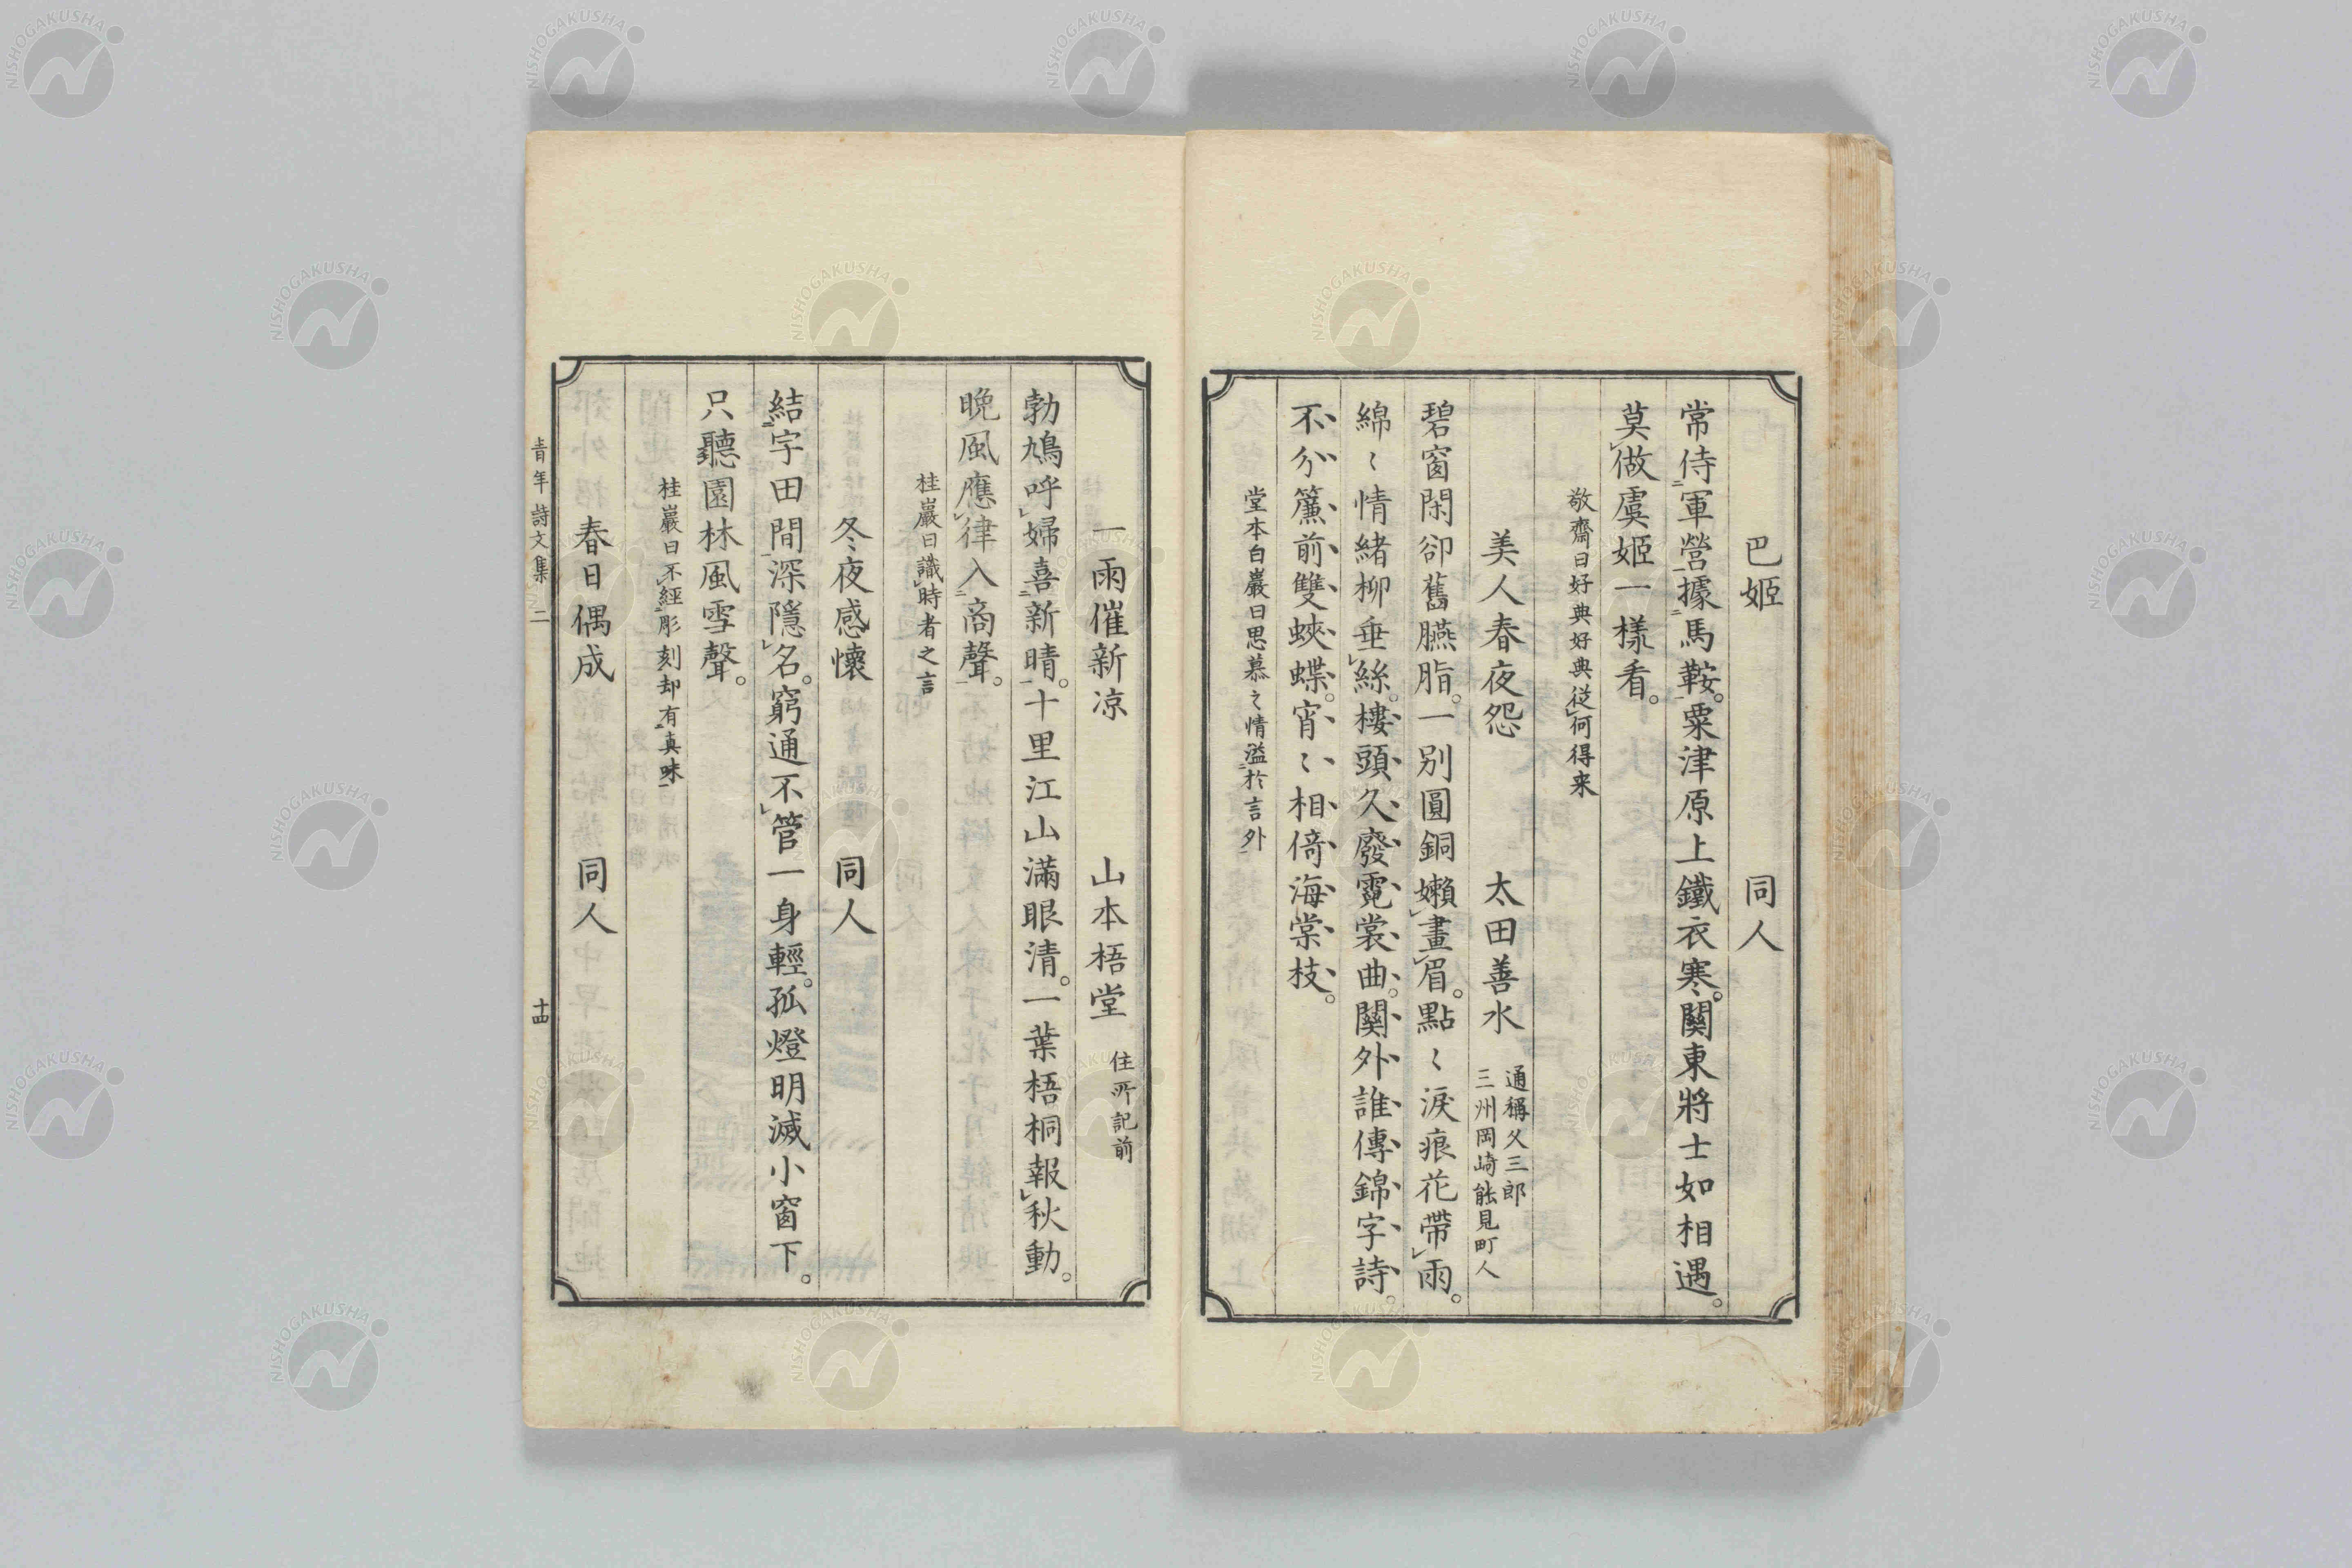 巴姬 同人
常侍軍營據馬鞍。粟津原上鐵衣寒。關東將士如相遇。
莫做虞姬一樣看。
敬齋曰好典好典從何得来
美人春夜怨 太田善水 通稱久三郎
三州岡崎能見町人
碧窗閑卻舊臙脂。一別圓銅嬾畫眉。點〻淚痕花帶雨。
綿〻情緒柳垂絲。樓頭久廢霓裳曲。關外誰傳錦字詩。
不分簾前雙蛺蝶。宵〻相倚海棠枝。
堂本白巖曰思慕之情溢於言外
一雨催新凉 山本梧堂 住所記前
勃鳩呼婦喜新晴。十里江山滿眼清。一葉梧桐報秋動。
晚風應律入商聲。
桂巖曰識時者之言
冬夜感懷 同人
結宇田間深隱名。窮通不管一身輕。孤燈明滅小窗下。
只聽園林風雪聲。
桂巖曰不經彫刻却有真味
春日偶成 同人
青年詩文集 二 十四
NISHOGAKUSHA